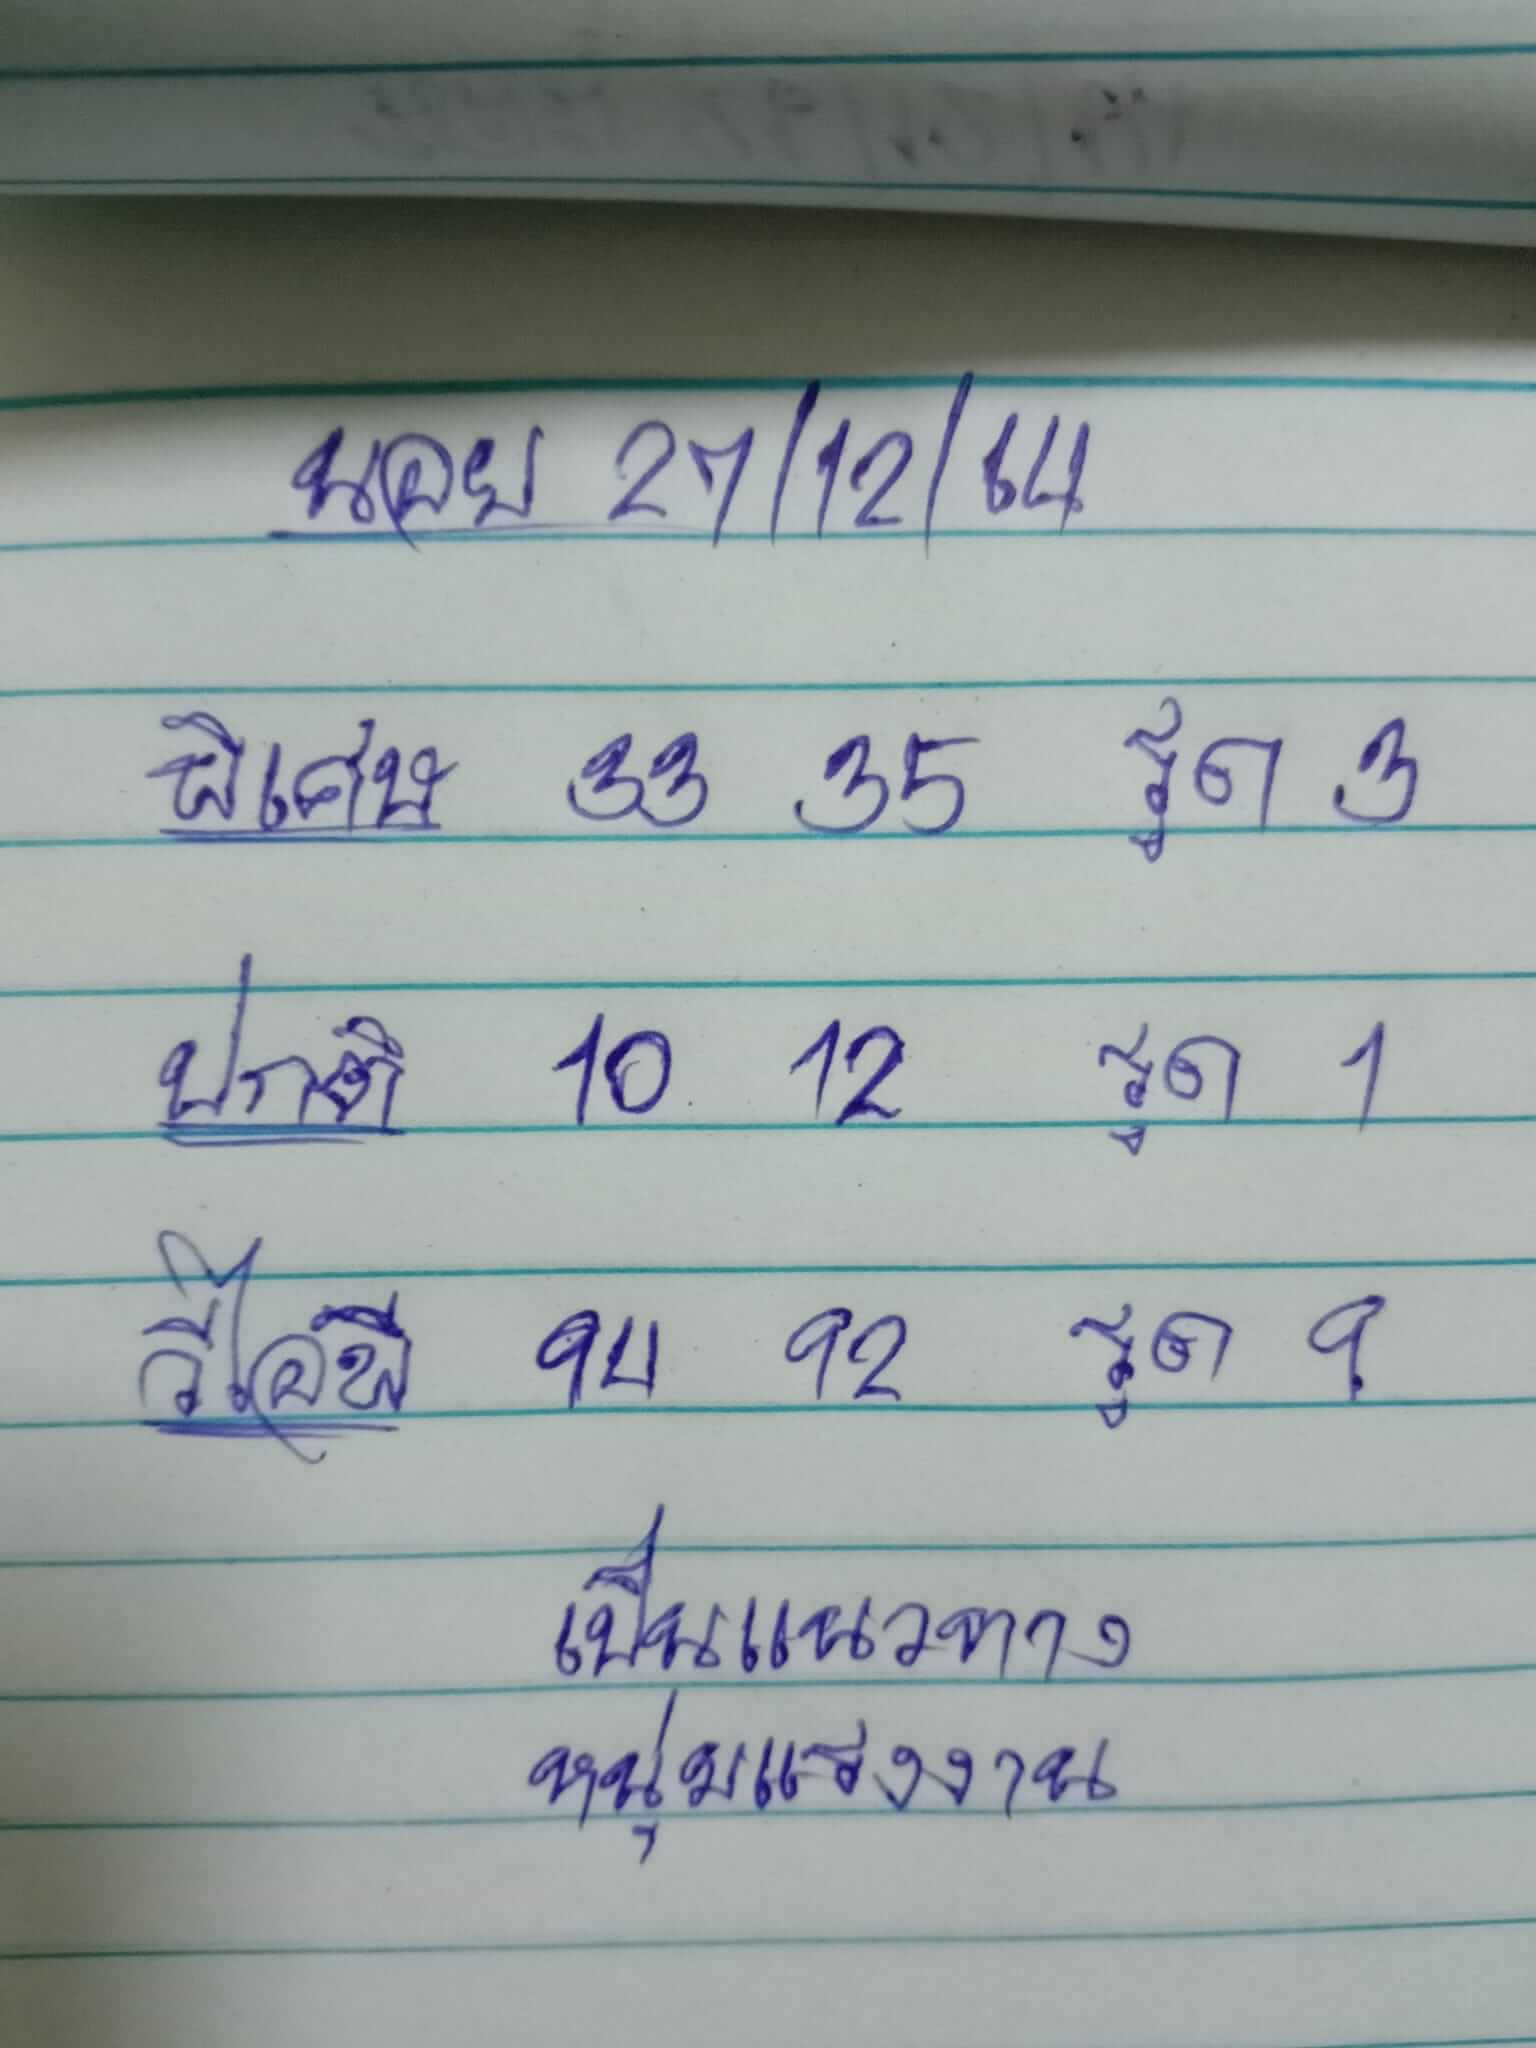 นอย 27/12/64
พิเศษ 33 35 รูด 3
ปกติ 10 12 รูด 1
วีไอพี 94 92 รูด 9
เป็นแนวทาง
หนุ่มแรงงาน